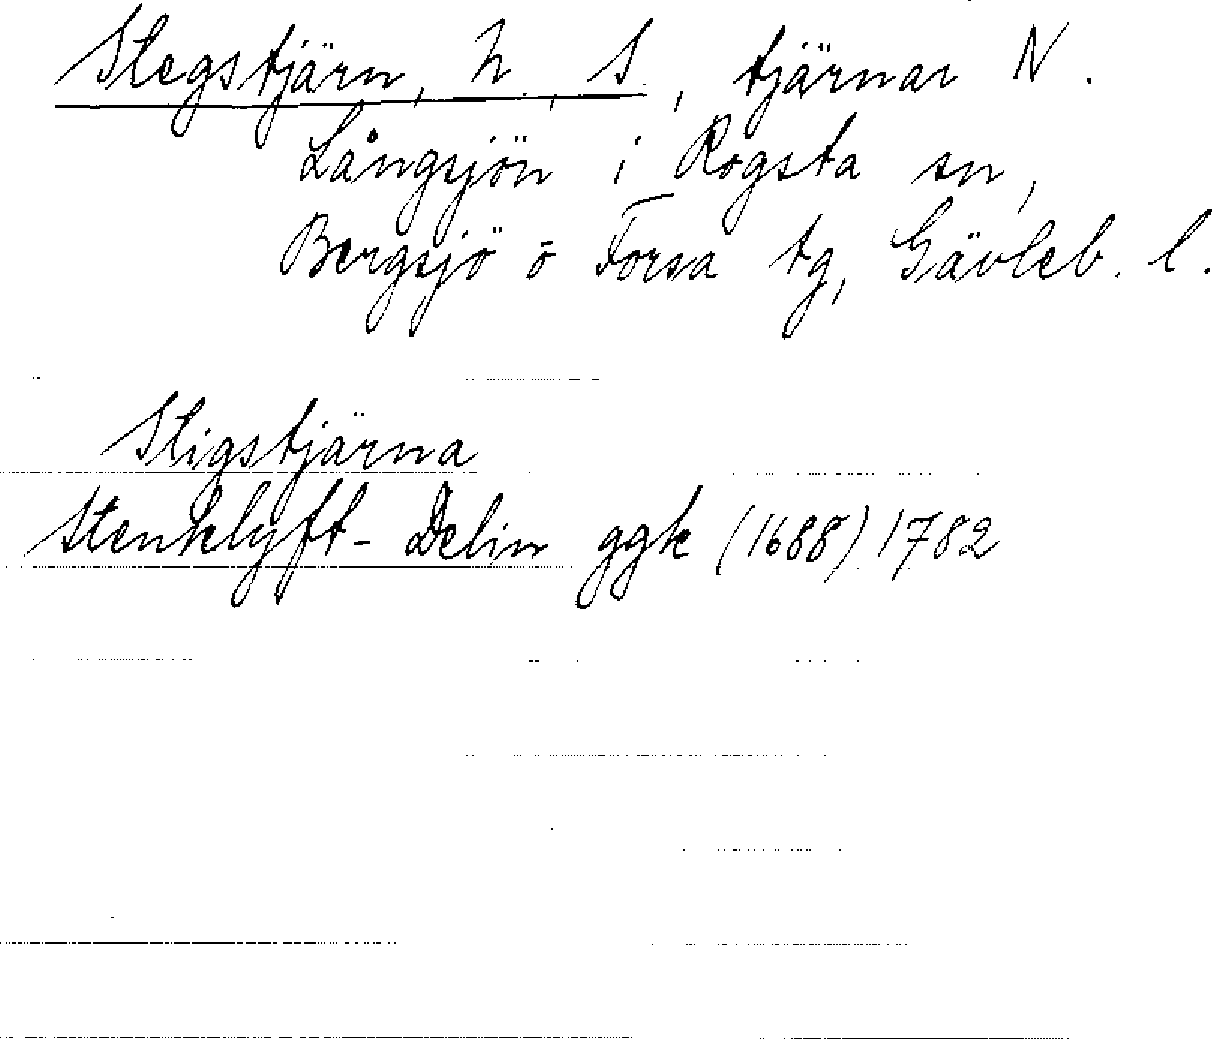 Stegstjärn, N., S., tjärnar N.
Långsjön i Rogsta sn,
Bergsjö o Forsa tg, Gävleb. l.
Stigstjärna
Stenklyft- Delin ggk (1688) 1782